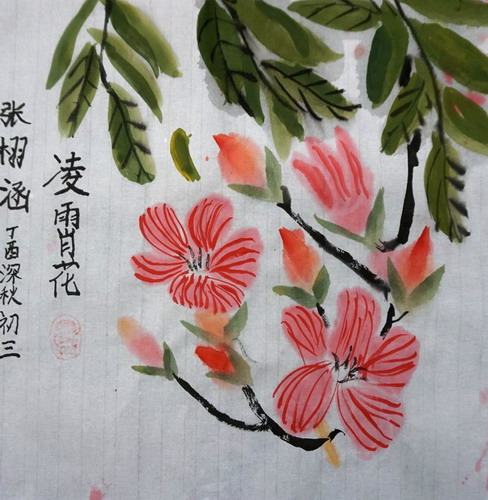 凌霄花
张栩涵丁酉深秋初三